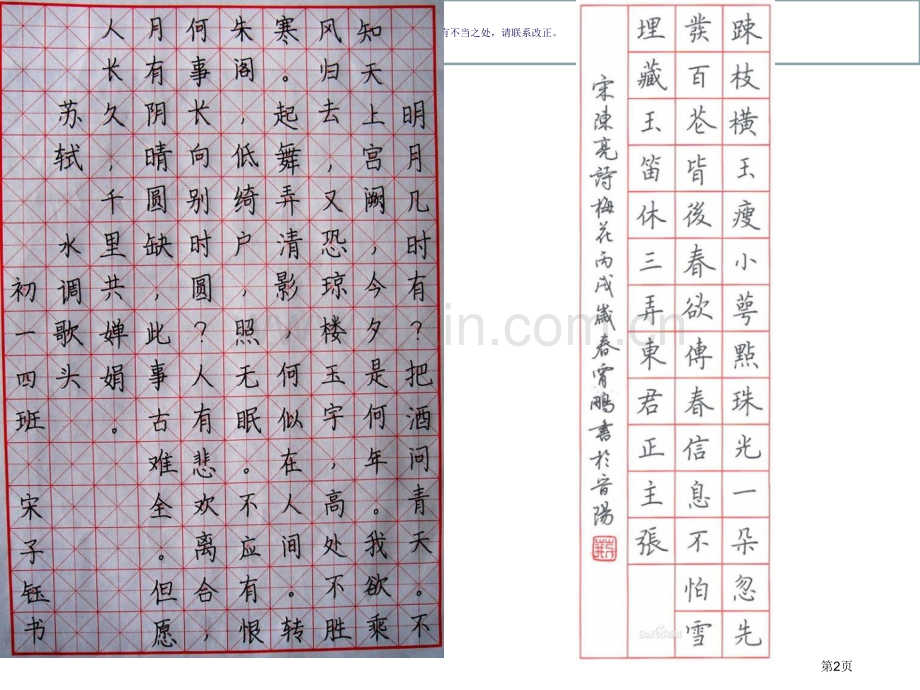 有不当之处，请联系改正。
明月几时有？把酒问青天。不
知天上宫阙，今夕是何年。我欲乘
风归去，又恐琼楼玉宇，高处不胜
寒。起舞弄清影，何似在人间。转
朱阁，低绮户，照无眠。不应有恨
何事长向别时圆？人有悲欢离合，
月有阴晴圆缺，此事古难全。但愿
人长久，千里共婵娟。
苏轼 水调歌头
初一四班 宋子钰书
疎枝橫玉瘦小萼點珠光一朵忽先
發百花皆後春欲傳春信息不怕雪
埋藏玉笛休三弄東君正主張
宋陳亮詩梅花丙戌歲春宵鵬書於晉陽
第2页